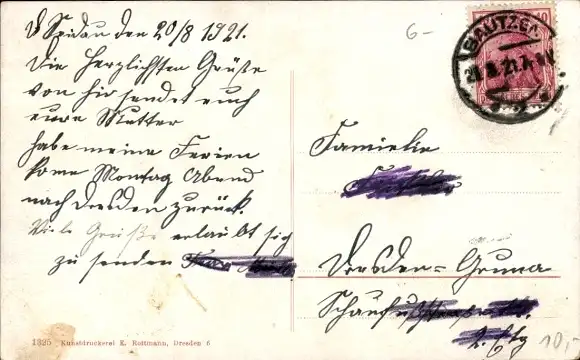 Spidau den 20/8 1921.
Die Herzlichsten Grüße
von hir sendet euch
eure Mutter
habe meine Ferien
kome Montag Abend
nach Dresden zurück.
Viele Grüße erlaubt sich
zu senden
6-
BAUTZEN
21.8.21.
Familie
Dresden=Gruna
Schaufußstr
2. Etg
10,-
1325 Kunstdruckerei K. Rottmann, Dresden 6